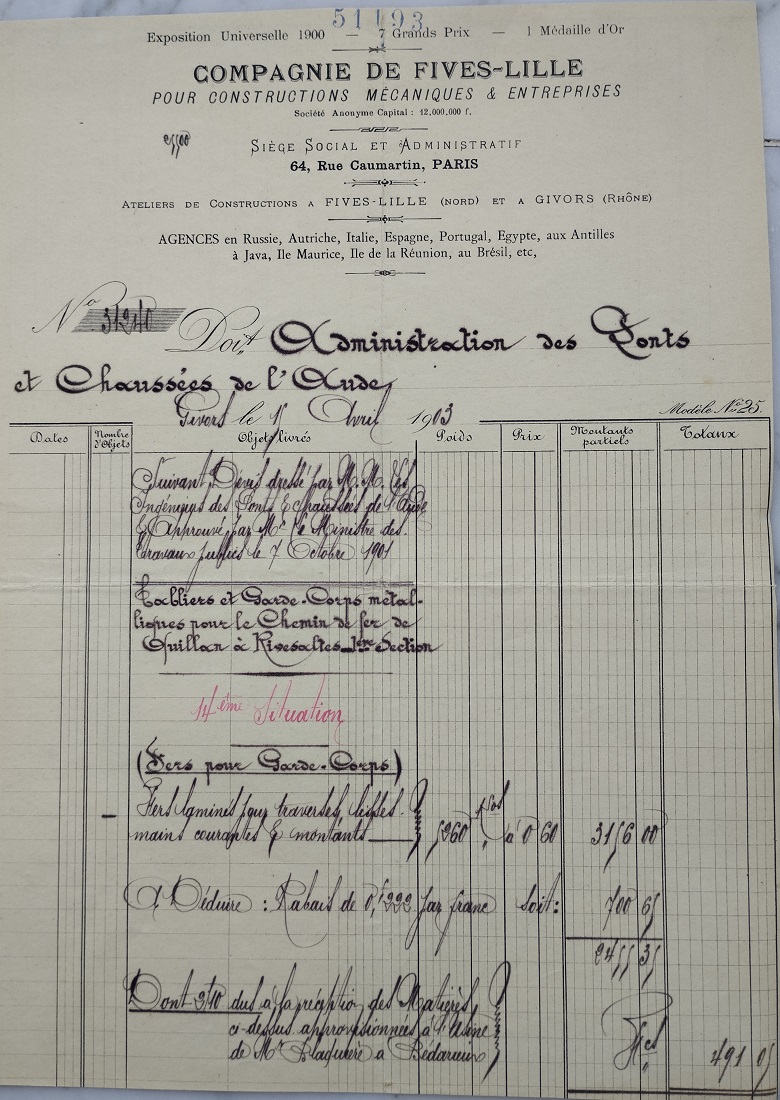 51193
Exposition Universelle 1900 — 7 Grands Prix — 1 Médaille d'Or
COMPAGNIE DE FIVES-LILLE
POUR CONSTRUCTIONS MÉCANIQUES & ENTREPRISES
Société Anonyme Capital : 12,000,000 f.
SIÈGE SOCIAL ET ADMINISTRATIF
64, Rue Caumartin, PARIS
ATELIERS DE CONSTRUCTIONS A FIVES-LILLE (NORD) ET A GIVORS (RHÔNE)
AGENCES en Russie, Autriche, Italie, Espagne, Portugal, Egypte, aux Antilles
à Java, Ile Maurice, Ile de la Réunion, au Brésil, etc,
No 31240 Doit Administration des Ponts
et Chaussées de l'Aude
Givors le Avril 1903
Modèle No 25.
Dates Nombre d'Objets Objets livrés Poids Prix Montants partiels Totaux
Suivant Devis dressé par M.M. les
Ingénieurs des Ponts & Chaussées de l'Aude
& Approuvé par Mr le Ministre des
travaux publics le 7 Octobre 1901
Tabliers et Garde-Corps métal-
liques pour le Chemin de fer de
Quillan à Rivesaltes 1ère Section
14ème Situation
(Fers pour Garde-Corps)
Fers laminés pour traverses, lisses
mains courantes & montants 5260 à 0 60 3156 00
A Déduire : Rabais de 0,f222 par franc soit : 700 65
2455 35
Dont 3/10 dus à la réception des Matières
ci-dessus approvisionnées à l'Usine
de Mr à Bédarieux 491 05